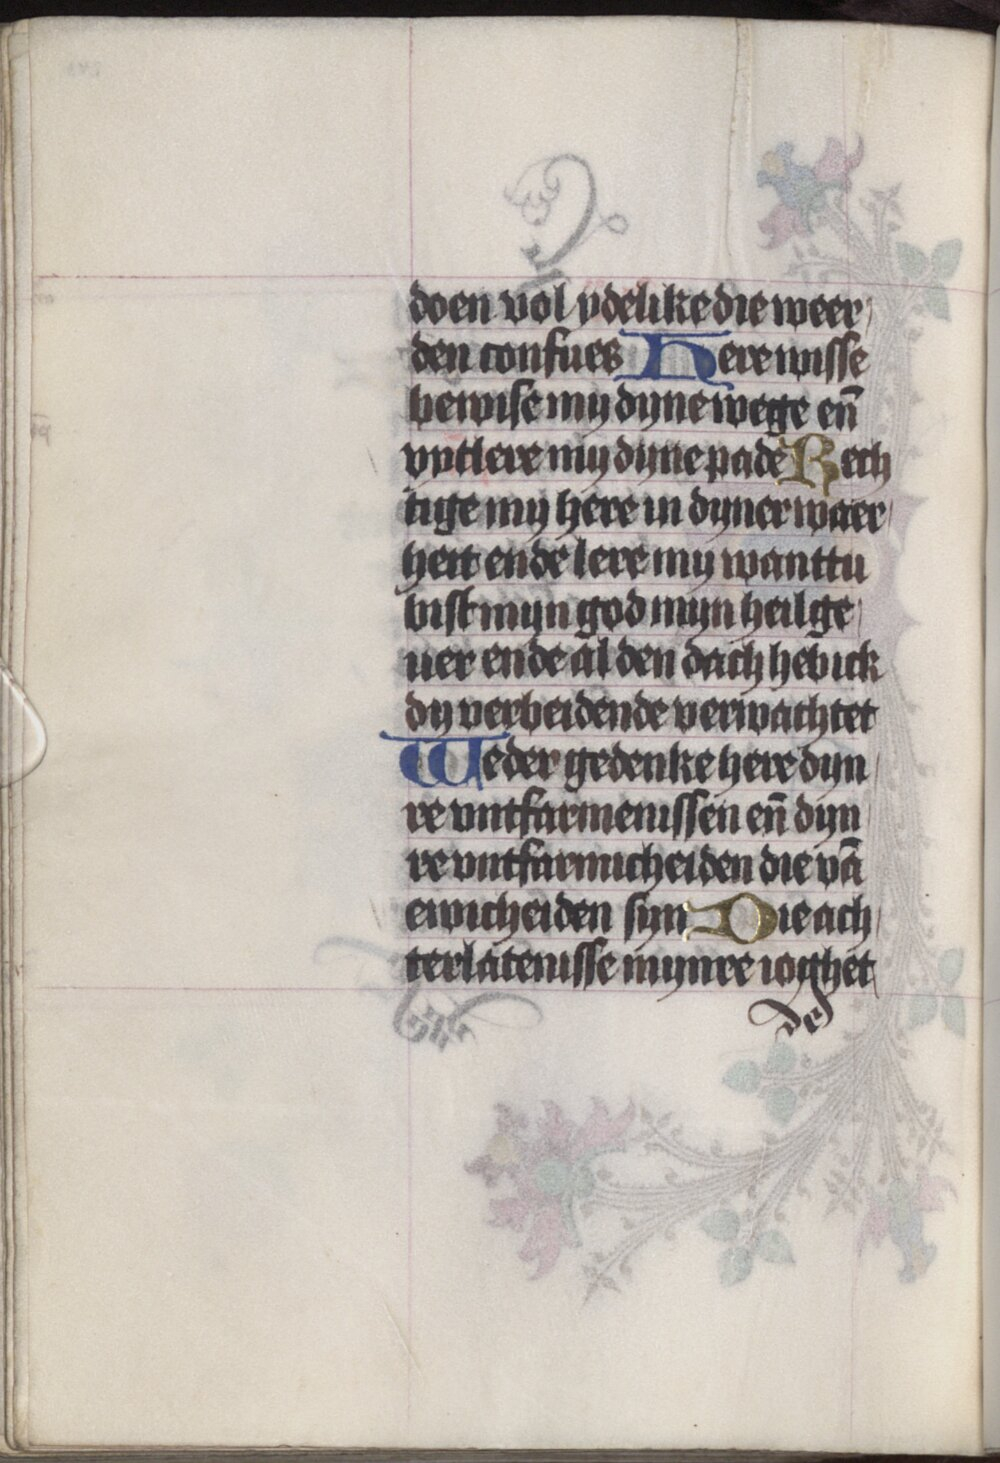 doen vol ydelike die weer
den confues Here wisse
bewise my dyne wege en̄
vntlere my dyne pade Rech
tige my here in dyner waer
heit ende lere my want tu
bist myn god myn heilge
uer ende al den dach heb ick
dy verbeidende verwachtet
Weder gedenke here dyn
re vntfarmenissen en̄ dyn
re vntfarmicheiden die vā
ewicheiden syn Die ach
terlatenisse mynre ioghet
des